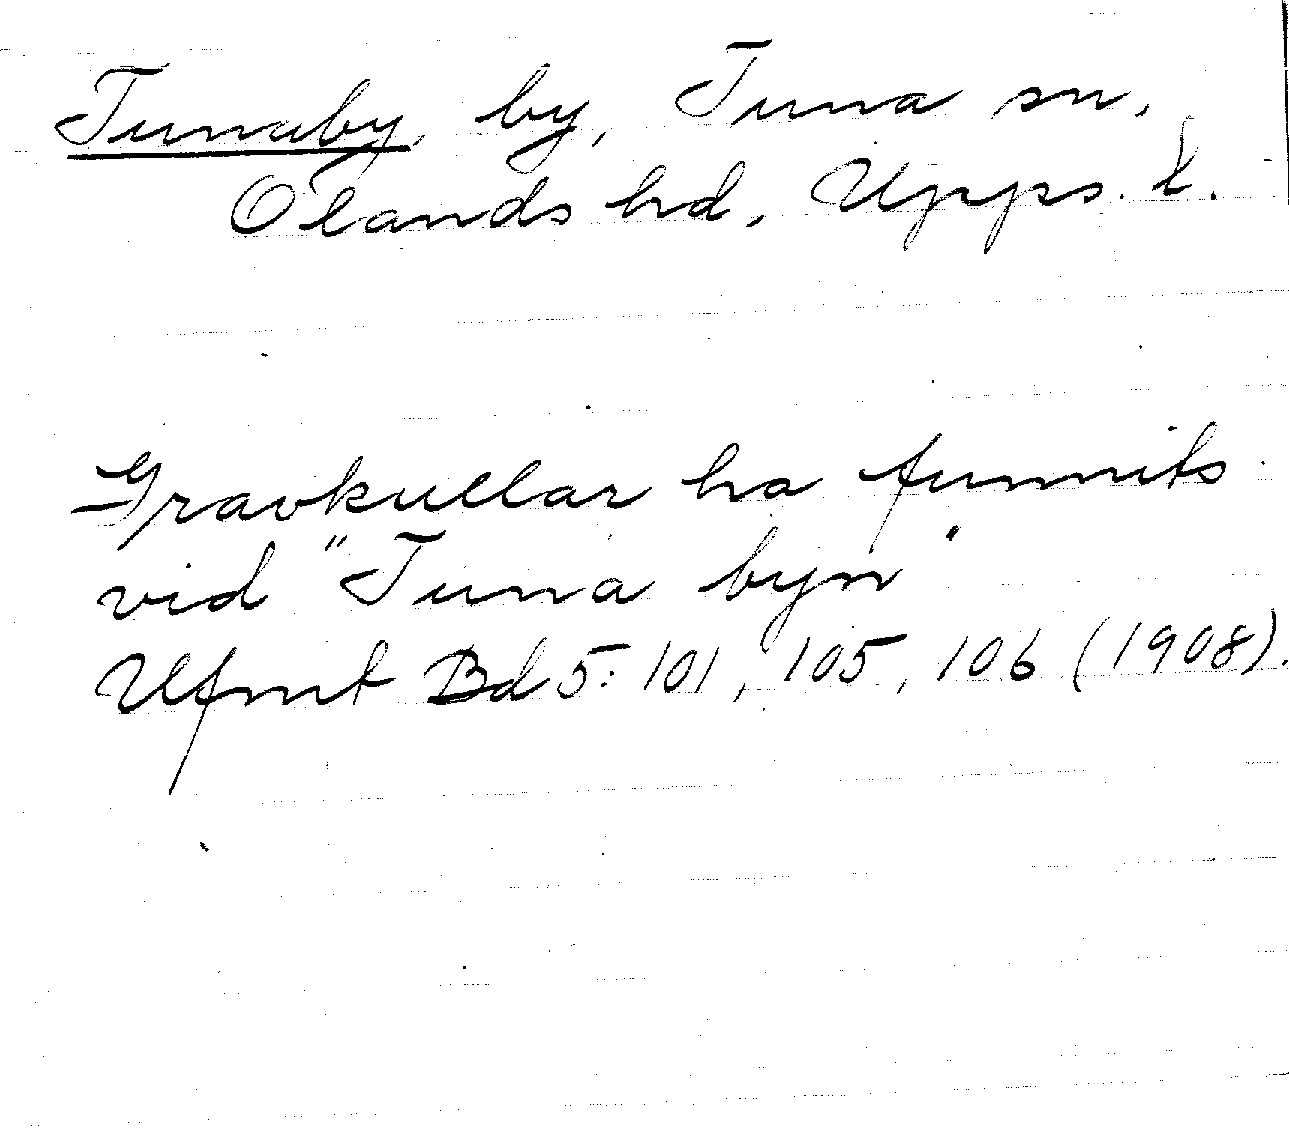 Tunaby, by, Tuna sn,
Olands hd, Upps. l.
Gravkullar ha funnits
vid "Tuna byn"
Ufmt Bd 5: 101, 105, 106 (1908).